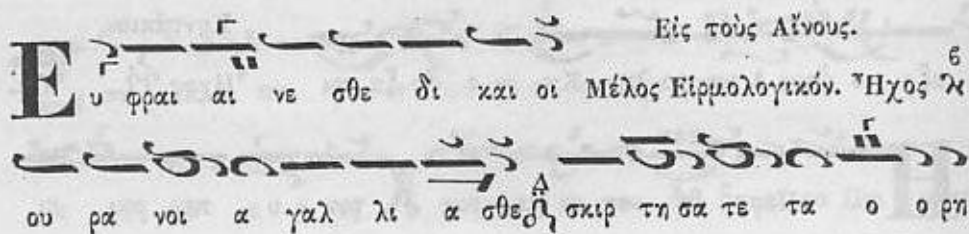 Εἰς τοὺς Αἴνους.
Ευ φραι αι νε σθε δι και οι Μέλος Εἱρμολογικόν. Ἦχος
ου ρα νοι α γαλ λι α σθε σκιρ τη σα τε τα ο ο ρη